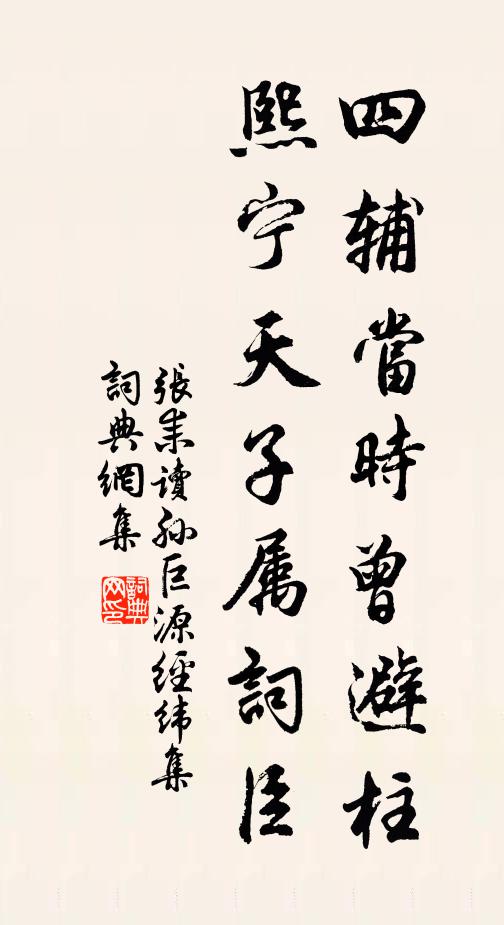 四辅當時曾避柱
熙宁天子属詞臣
張耒讀孙巨源經緯集
詞典網集
詞典網印